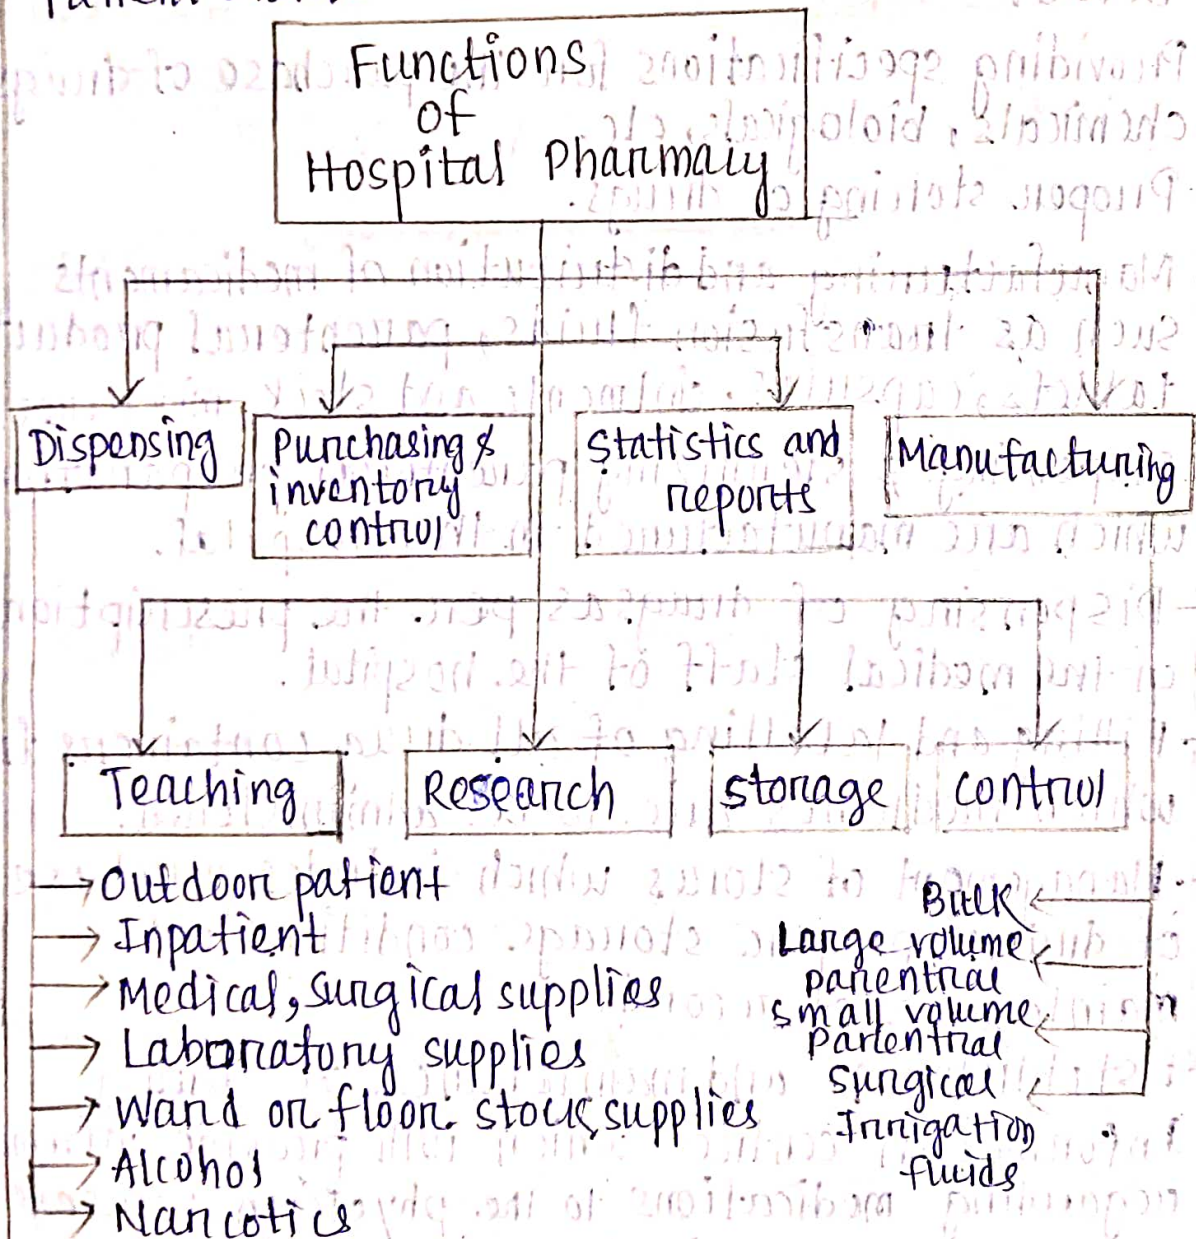 Functions
of
Hospital Pharmacy
Dispensing
Purchasing &
inventory
control
Statistics and
reports
Manufacturing
Teaching
Research
storage
control
Outdoor patient
Inpatient
Medical, surgical supplies
Laboratory supplies
Ward or floor stock supplies
Alcohol
Narcotics
Bulk
Large volume
parentral
small volume
parentral
surgical
Irrigation
fluids